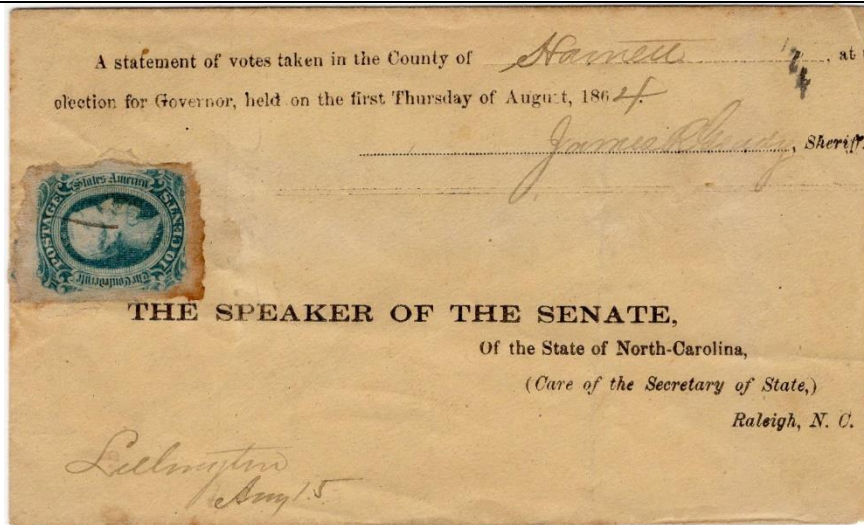 A statement of votes taken in the County of Harnett, at
election for Governor, held on the first Thursday of August, 1864.
James, Sheriff.
POSTAGE
States America
10 CENTS
The Confederate
THE SPEAKER OF THE SENATE,
Of the State of North-Carolina,
(Care of the Secretary of State,)
Raleigh, N. C.
Lillington
Aug 15